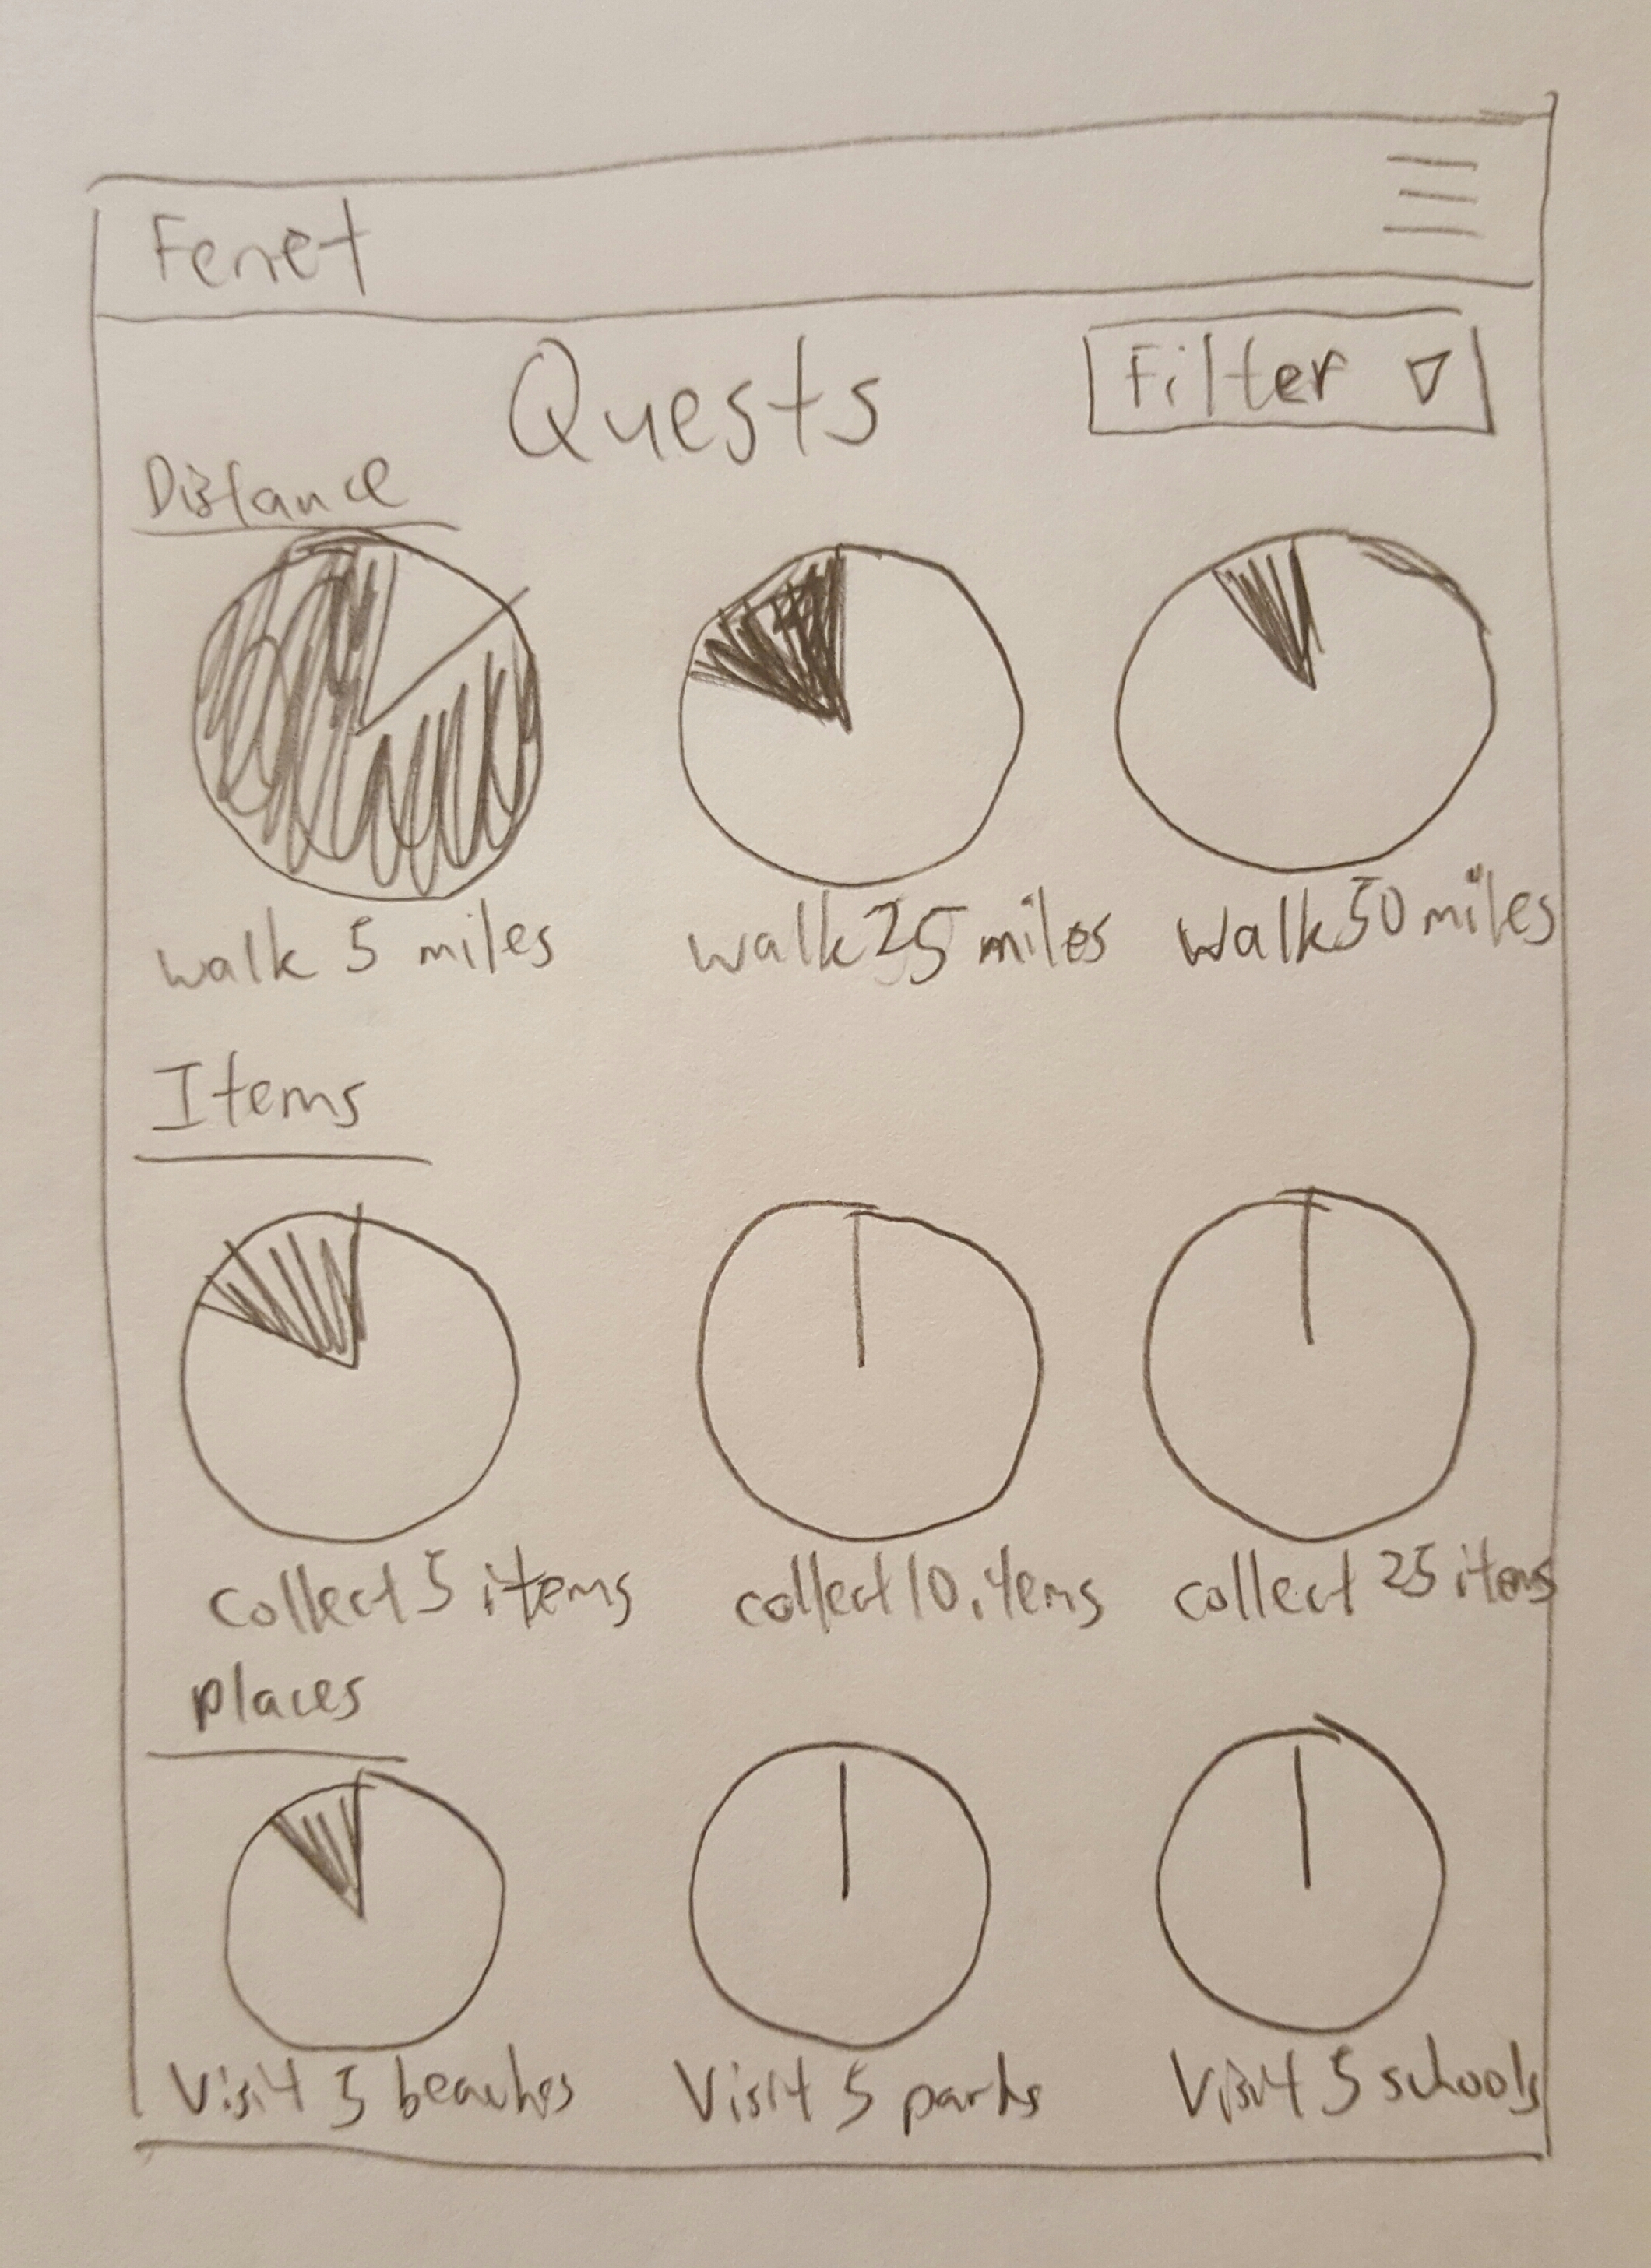 Fenet
Quests
Filter
Distance
walk 5 miles
walk 25 miles
walk 50 miles
Items
collect 5 items
collect 10 items
collect 25 items
places
Visit 5 beaches
Visit 5 parks
Visit 5 schools